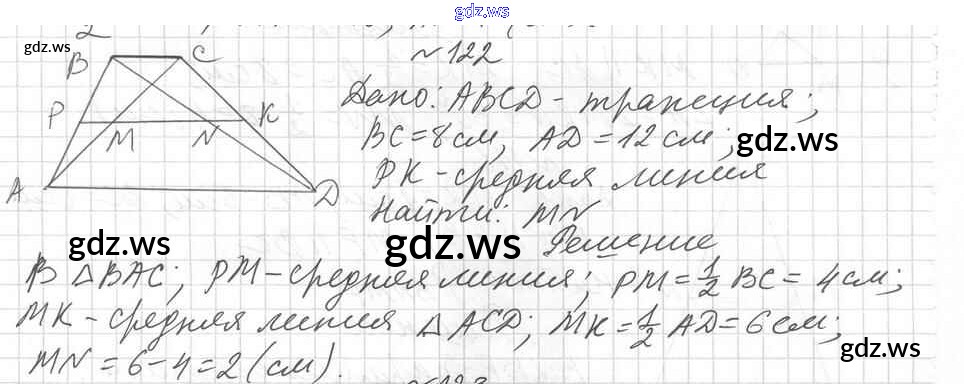 gdz.ws
gdz.ws
№122
B C
P M N K
A D
Дано: ABCD - трапеция;
BC = 8 см, AD = 12 см;
gdz.ws
PK - средняя линия
Найти: MN
gdz.ws gdz.ws
Решение
В △BAC; PM - средняя линия; PM = 1/2 BC = 4 см;
MK - средняя линия △ACD; MK = 1/2 AD = 6 см;
gdz.ws
MN = 6 - 4 = 2 (см).
№123